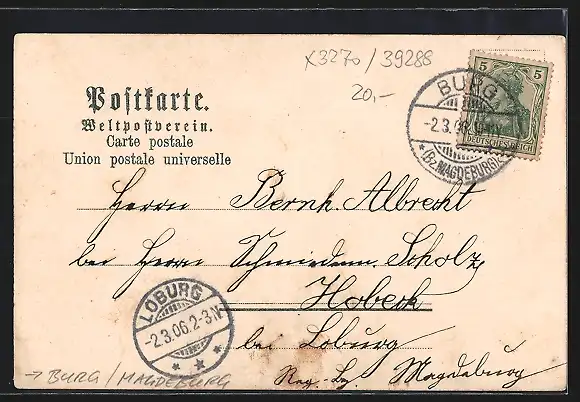 x3270/39288
20,-
Postkarte.
Weltpostverein.
Carte postale
Union postale universelle
5 5
DEUTSCHES REICH
BURG
-2.3.06.
*(Bz.MAGDEBURG)
Herrn Bernh. Albrecht
bei Herrn Schmiedem. Scholz,
Hobeck
bei Loburg
Reg.-Bz. Magdeburg
LOBURG
-2.3.06.2-3N
→ BURG/MAGDEBURG